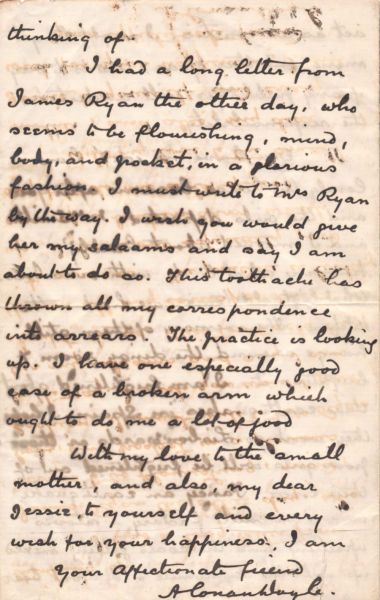 thinking of.
I had a long letter from
James Ryan the other day, who
seems to be flourishing, mind,
body, and pocket, in a glorious
fashion. I must write to Mrs Ryan
by the way. I wish you would give
her my salaams and say I am
about to do so. This toothache has
thrown all my correspondence
into arrears. The practice is looking
up. I have one especially good
case of a broken arm which
ought to do me a lot of good
With my love to the small
mother, and also, my dear
Jessie, to yourself and every
wish for your happiness. I am
Your affectionate friend
A Conan Doyle.